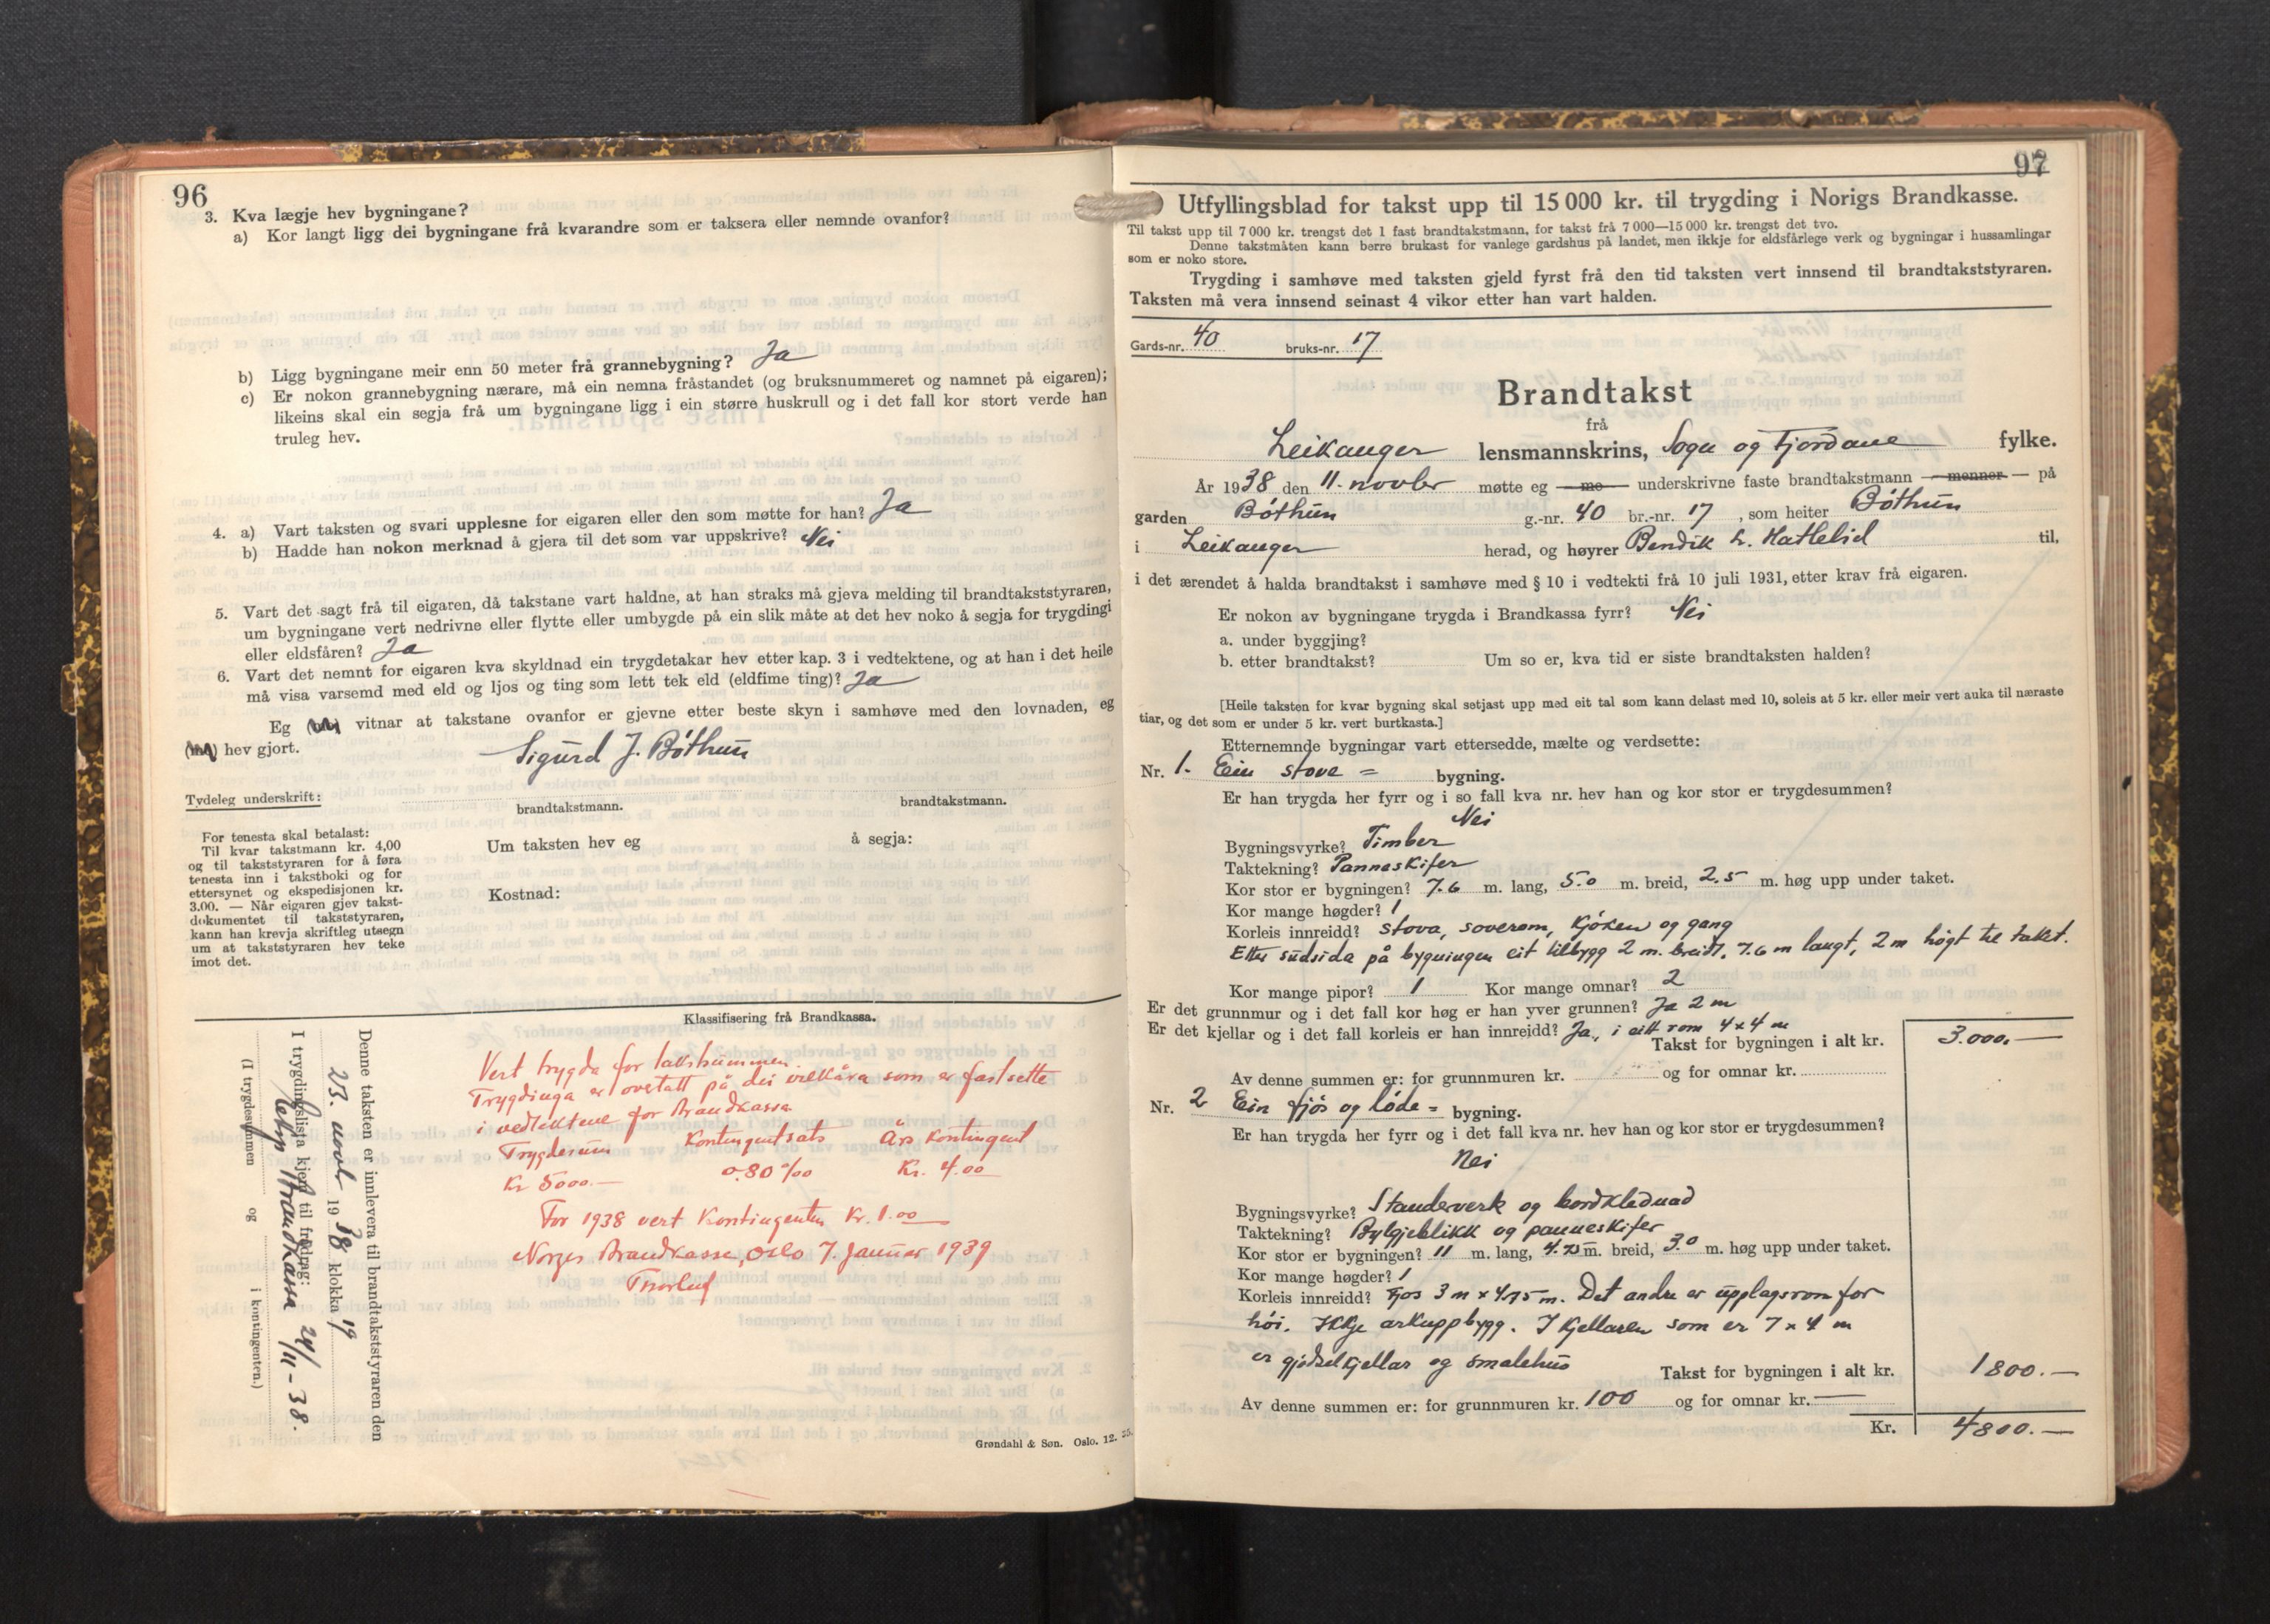 96
3. Kva lægje hev bygningane?
a) Kor langt ligg dei bygningane frå kvarandre som er taksera eller nemnde ovanfor?
b) Ligg bygningane meir enn 50 meter frå grannebygning? Ja
c) Er nokon grannebygning nærare, må ein nemna fråstandet (og bruksnummeret og namnet på eigaren);
likeins skal ein segja frå um bygningane ligg i ein større huskrull og i det fall kor stort verde han
truleg hev.
4. a) Vart taksten og svari upplesne for eigaren eller den som møtte for han? Ja
b) Hadde han nokon merknad å gjera til det som var uppskrive? Nei
5. Vart det sagt frå til eigaren, då takstane vart haldne, at han straks må gjeva melding til brandtakststyraren,
um bygningane vert nedrivne eller flytte eller umbygde på ein slik måte at det hev noko å segja for trygdingi
eller eldsfåren? Ja
6. Vart det nemnt for eigaren kva skyldnad ein trygdetakar hev etter kap. 3 i vedtektene, og at han i det heile
må visa varsemd med eld og ljos og ting som lett tek eld (eldfime ting)? Ja
Eg vitnar at takstane ovanfor er gjevne etter beste skyn i samhøve med den lovnaden, eg
hev gjort.
Sigurd J. Bøthun
Tydeleg underskrift:
brandtakstmann. brandtakstmann.
For tenesta skal betalast:
Til kvar takstmann kr. 4,00
og til takststyraren for å føra
tenesta inn i takstboki og for
ettersynet og ekspedisjonen kr.
3.00. — Når eigaren gjev takst-
dokumentet til takststyraren,
kann han krevja skriftleg utsegn
um at takststyraren hev teke
imot det.
Um taksten hev eg å segja:
Kostnad:
Klassifisering frå Brandkassa.
Vert trygda for takstsummen.
Trygdinga er overtatt på dei vilkåra som er fastsette
i vedtektene for Brandkassa
Trygdesum Kontingentsats Års kontingent
Kr 5000.— 0.80 ‰ Kr. 4.00
For 1938 vert Kontingenten Kr. 1.00
Norges Brandkasse, Oslo 7. Januar 1939
Denne taksten er innlevera til brandtakststyraren den
23. novbr 1938 klokka 19
I trygdingslista kjem til frådrag:
Brandkassa 24/11-38.
(I trygdesummen og i kontingenten.)
Grøndahl & Søn. Oslo. 12. 25.
97
Utfyllingsblad for takst upp til 15 000 kr. til trygding i Norigs Brandkasse.
Til takst upp til 7 000 kr. trengst det 1 fast brandtakstmann, for takst frå 7 000—15 000 kr. trengst det tvo.
Denne takstmåten kann berre brukast for vanlege gardshus på landet, men ikkje for eldsfårlege verk og bygningar i hussamlingar
som er noko store.
Trygding i samhøve med taksten gjeld fyrst frå den tid taksten vert innsend til brandtakststyraren.
Taksten må vera innsend seinast 4 vikor etter han vart halden.
Gards-nr. 40 bruks-nr. 17
Brandtakst
frå
Leikanger lensmannskrins, Sogn og Fjordane fylke.
År 1938 den 11. novbr møtte eg — me — underskrivne faste brandtakstmann — menner — på
garden Bøthun g.-nr. 40 br.-nr. 17, som heiter Bøthun
i Leikanger herad, og høyrer Bendik L. Hatlelid til,
i det ærendet å halda brandtakst i samhøve med § 10 i vedtekti frå 10 juli 1931, etter krav frå eigaren.
Er nokon av bygningane trygda i Brandkassa fyrr? Nei
a. under byggjing?
b. etter brandtakst? Um so er, kva tid er siste brandtaksten halden?
[Heile taksten for kvar bygning skal setjast upp med eit tal som kann delast med 10, soleis at 5 kr. eller meir vert auka til næraste
tiar, og det som er under 5 kr. vert burtkasta.]
Etternemnde bygningar vart ettersedde, mælte og verdsette:
Nr. 1. Ein stove = bygning.
Er han trygda her fyrr og i so fall kva nr. hev han og kor stor er trygdesummen?
Nei
Bygningsvyrke? Timber
Taktekning? Panneskifer
Kor stor er bygningen? 7.6 m. lang, 5.0 m. breid, 2.5 m. høg upp under taket.
Kor mange høgder? 1
Korleis innreidd? Stova, soverom, kjøken og gang
Etter sudsida på bygningen eit tilbygg 2 m. breidt, 7.6 m langt, 2 m høgt til taket.
Kor mange pipor? 1 Kor mange omnar? 2
Er det grunnmur og i det fall kor høg er han yver grunnen? Ja 2 m
Er det kjellar og i det fall korleis er han innreidd? Ja, i eitt rom 4 x 4 m
Takst for bygningen i alt kr. 3.000.—
Av denne summen er: for grunnmuren kr. og for omnar kr.
Nr. 2 Ein fjøs og løde = bygning.
Er han trygda her fyrr og i det fall kva nr. hev han og kor stor er trygdesummen?
Nei
Bygningsvyrke? Standerverk og bordklednad
Taktekning? Bylgjeblikk og panneskifer
Kor stor er bygningen? 11 m. lang, 4.75 m. breid, 3.0 m. høg upp under taket.
Kor mange høgder? 1
Korleis innreidd? Fjos 3 m x 4.75 m. Det andre er upplagsrom for
høi. Ikkje arkuppbygg. I kjellaren som er 7 x 4 m
er gjødselkjellar og smalehus
Takst for bygningen i alt kr. 1800.—
Av denne summen er: for grunnmuren kr. 100 og for omnar kr. —
Kr. 4800.—